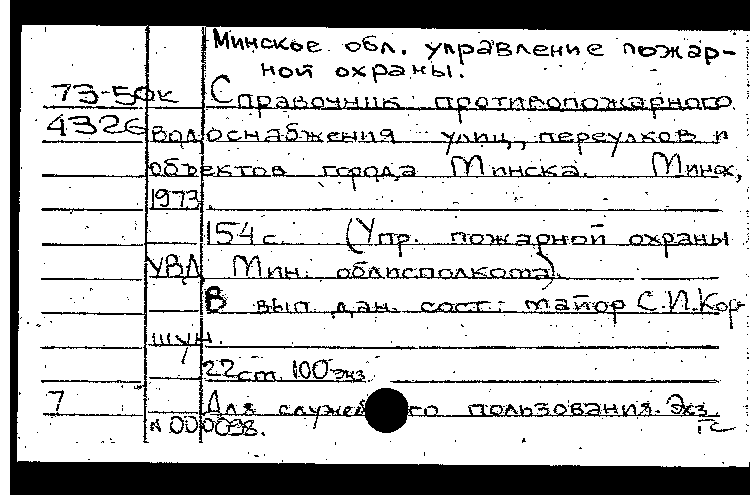 Минское обл. управление пожар-
ной охраны.
73-50к Справочник противопожарного
4326 водоснабжения улиц, переулков и
объектов города Минска. Минск,
1973.
154 с. (Упр. пожарной охраны
УВД Мин. облисполкома).
В вып. дан. сост.: майор С.И.Кор-
шун.
22 см. 100 экз.
7 Для служеб го пользования. Экз.
N 000098. ГС